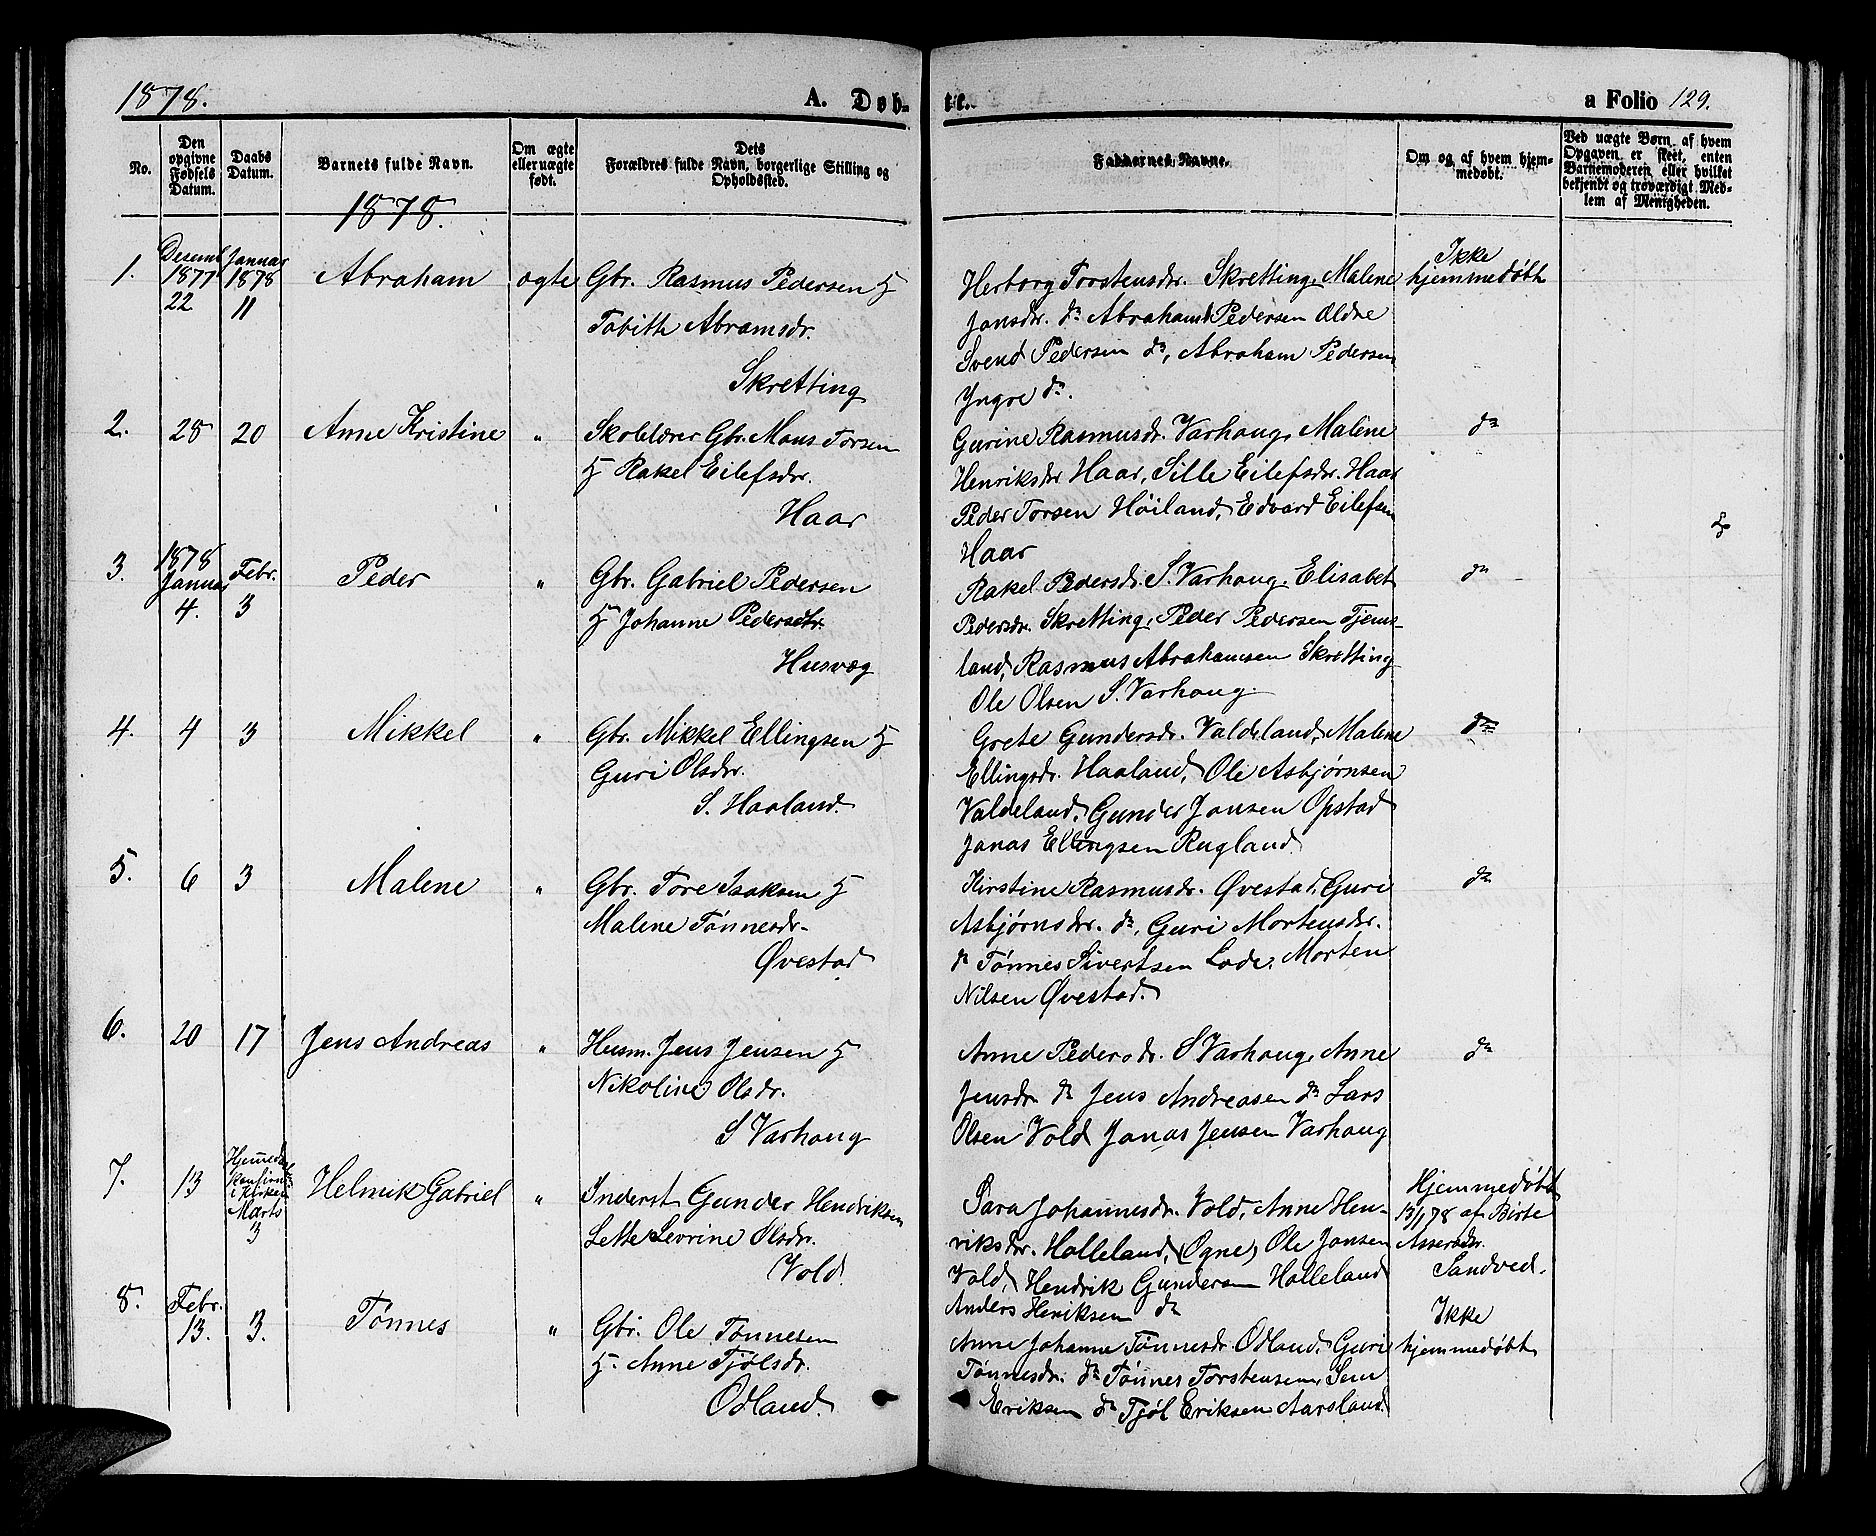 1878.
A. Døb-
te.
a Folio 129.
No.
Den opgivne Fødsels Datum.
Daabs Datum.
Barnets fulde Navn.
Om ægte eller uægte født.
Dets Forældres fulde Navn, borgerlige Stilling og Opholdssted.
Faddernes Navne.
Om og af hvem hjemmedøbt.
Ved uægte Børn, af hvem Opgaven er skeet, enten Barnemoderen eller hvilket bekjendt og troværdigt Medlem af Menigheden.
1878.
1.
Desemb
1877
22
Januar
1878
11
Abraham
ægte
Gbr. Rasmus Pedersen &
Tobith Abramsdr.
Skretting
Herborg Torstensdr. Skretting, Malene
Jonsdr. do Abraham Pedersen Ældre
Svend Pedersen do, Abraham Pedersen
Yngre do.
Ikke
hjemmedøbt
2.
28
20
Anne Kristine
"
Skolelærer Gbr. Mons Torsen
& Rakel Eilefsdr.
Haar
Gurine Rasmusdr. Varhoug, Malene
Henriksdr Haar, Sille Eilefsdr. Haar
Peder Torsen Høiland, Edvard Eilefsen
Haar
do
3.
1878
Januar
4.
Febr.
3
Peder
"
Gbr. Gabriel Pedersen
& Johanne Pedersdtr.
Husvæg
Rakel Pedersdr. S. Varhoug, Elisabet
Pedersdr. Skretting, Peder Pedersen Tjems-
land, Rasmus Abrahamsen Skretting
Ole Olsen S. Varhoug.
do
4.
4
3
Mikkel
"
Gbr. Mikkel Ellingsen &
Guri Olsdr.
S. Haaland.
Grete Gundersdr. Valdeland, Malene
Ellingsdr. Haaland, Ole Asbjørnsen
Valdeland, Gunder Jonsen Opstad
Jonas Ellingsen Rugland.
do
5.
6
3
Malene
"
Gbr. Tore Isaksen &
Malene Tønnesdr.
Øvestad
Kirstine Rasmusdr. Øvestad, Guri
Asbjørnsdr. do, Guri Mortensdr.
do Tønnes Sivertsen Lode, Morten
Nilsen Øvestad.
do
6.
20
17
Jens Andreas
"
Husm. Jens Jensen &
Nikoline Olsdr.
S Varhoug
Anne Pedersdr. S Varhoug, Anne
Jensdr do Jens Andreasen do Lars
Olsen Vold Jonas Jensen Varhoug
do
7.
13
i Kirken
Marts
3
Helmik Gabriel
"
Inderst Gunder Hendriksen
Lette Sevrine Olsdr.
Vold.
Sara Johannesdr. Vold, Anne Hen-
riksdr. Holleland, (Ogne) Ole Jonsen
Vold, Hendrik Gundersen Holleland
Anders Henriksen do
Hjemmedøbt
13/1 78 af Birte
Assersdr.
Sandved.
8.
Febr.
13.
3.
Tønnes
"
Gbr. Ole Tønnesen
& Anne Tjølsdr.
Ødland.
Anne Johanne Tønnesdr. Ødland, Guri
Tønnesdr. do Tønnes Torstensen,
Eriksen do Tjøl Eriksen Aarsland.
Ikke
hjemmedøbt